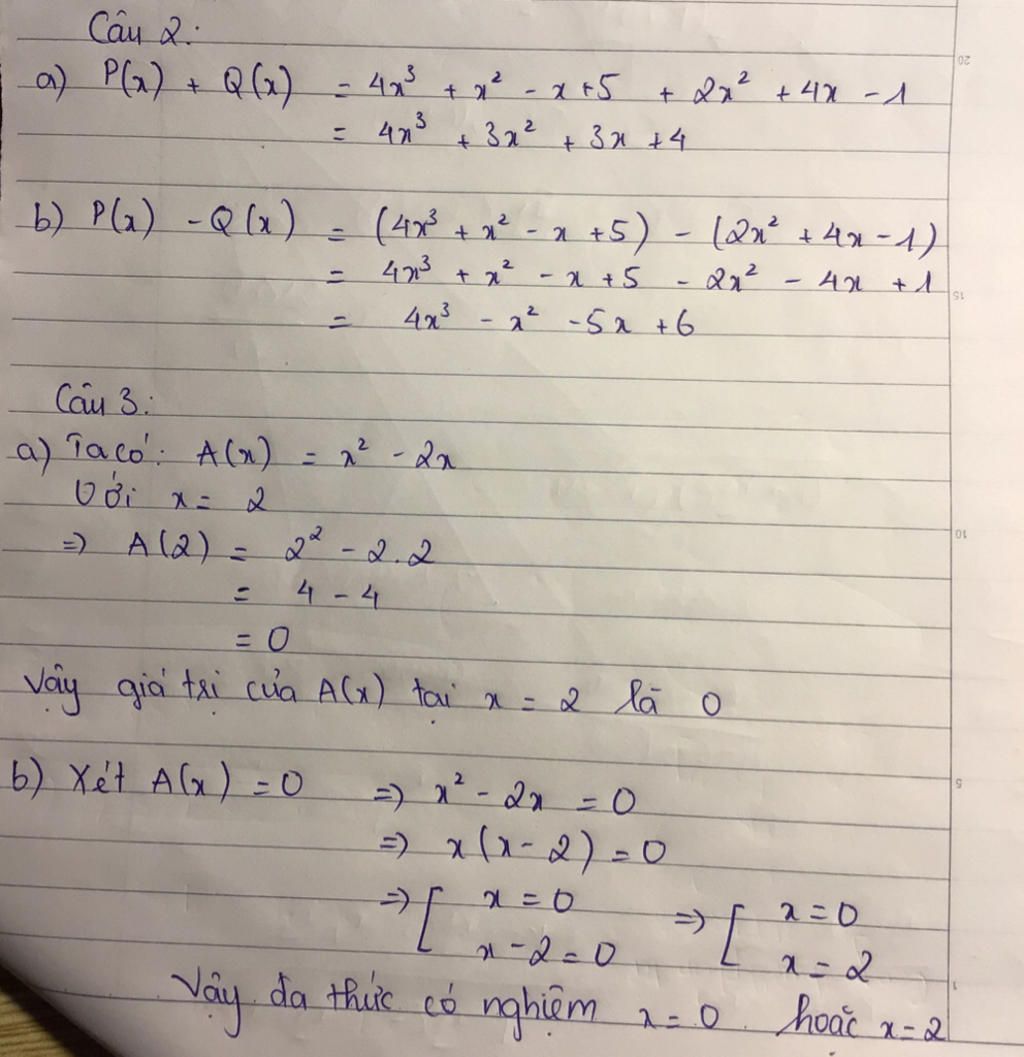 Câu 2:
a) P(x) + Q(x) = 4x³ + x² - x + 5 + 2x² + 4x - 1
= 4x³ + 3x² + 3x + 4
b) P(x) - Q(x) = (4x³ + x² - x + 5) - (2x² + 4x - 1)
= 4x³ + x² - x + 5 - 2x² - 4x + 1
= 4x³ - x² - 5x + 6
Câu 3:
a) Ta có: A(x) = x² - 2x
Với x = 2
=> A(2) = 2² - 2.2
= 4 - 4
= 0
Vậy giá trị của A(x) tại x = 2 là 0
b) Xét A(x) = 0 => x² - 2x = 0
=> x(x - 2) = 0
=> [ x = 0 => [ x = 0
x - 2 = 0 x = 2
Vậy đa thức có nghiệm x = 0 hoặc x = 2
20
15
10
5
1